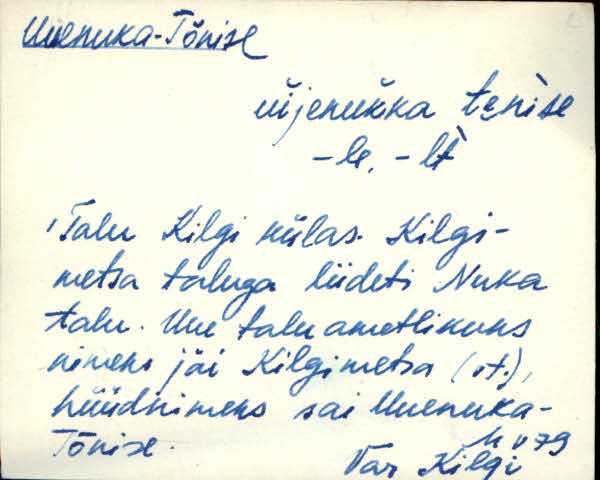 Uuenuka-Tõnise
ùi̯jenùkka tɛ̮ǹise
-le, -lt
'Talu Kilgi külas. Kilgi-
metsa taluga liideti Nuka
talu. Uue talu ametlikuks
nimeks jäi Kilgimetsa (vt.),
hüüdnimeks sai Uuenuka-
Tõnise.
Var Kilgi 79